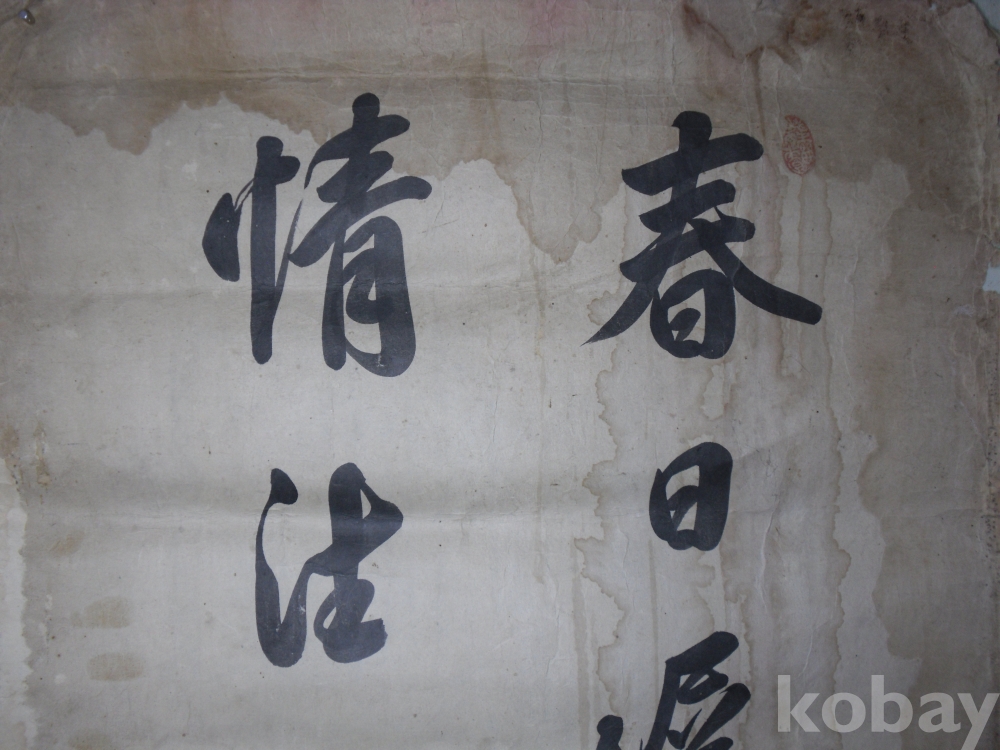 春日
情法
kobay